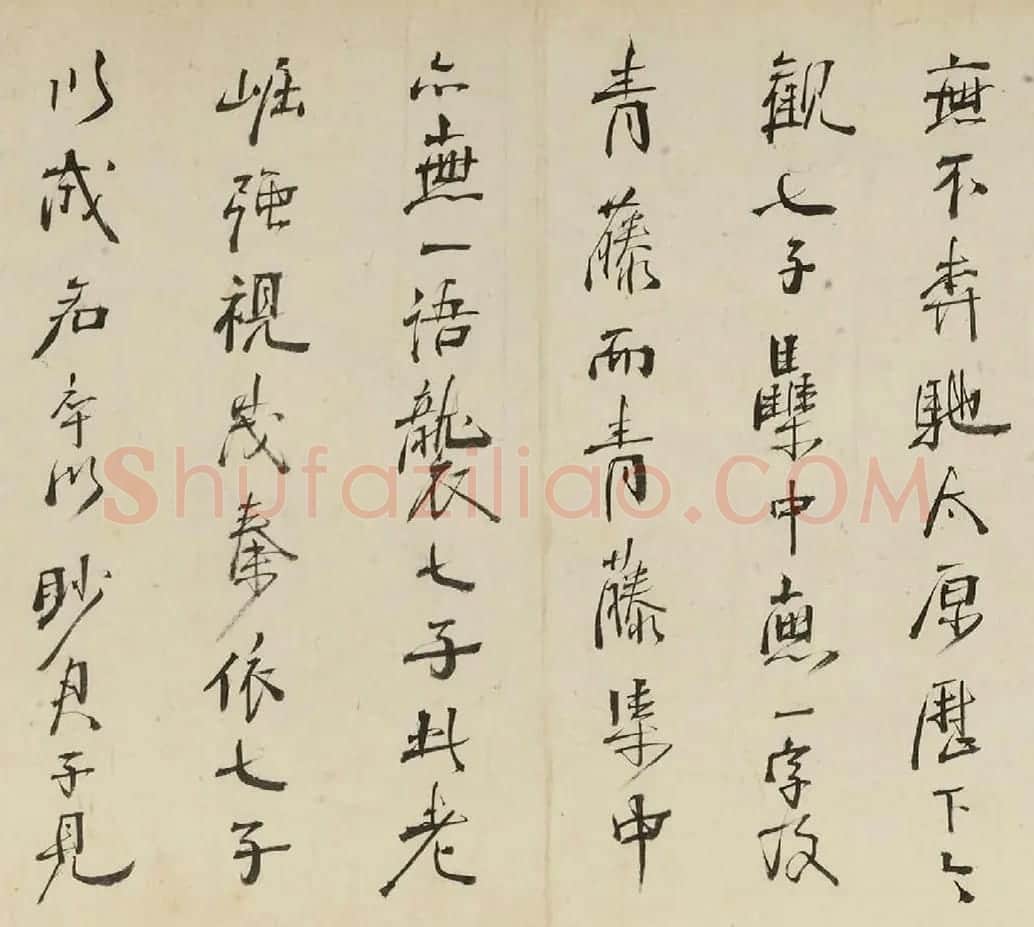 無不奔馳太原歷下今
觀七子集中無一字
青藤而青藤集中
亦無一語襲七子此老
崛強視茂秦依七子
以成名卒以眇君子見
Shufaziliao.COM